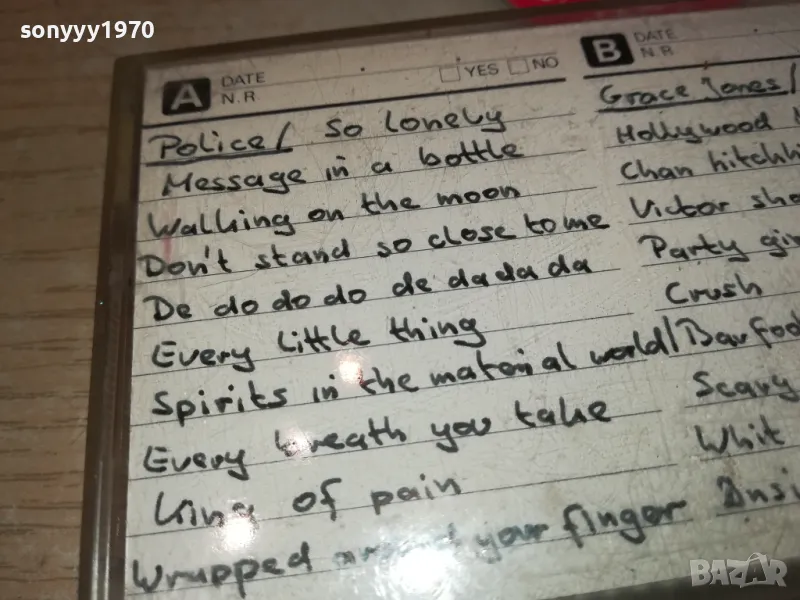 sonyyy1970
A DATE N.R. YES NO
Police/ So Lonely
Message in a bottle
Walking on the moon
Don't stand so close to me
De do do do de da da da
Every little thing
Spirits in the material world/
Every breath you take
King of pain
Wrapped around your finger
B DATE N.R.
Grace Jones/
Hollywood
Chan hitchhi
Victor sho
Party gir
Crush
Barfoo
Scary
Whit
Insi
BAZAR